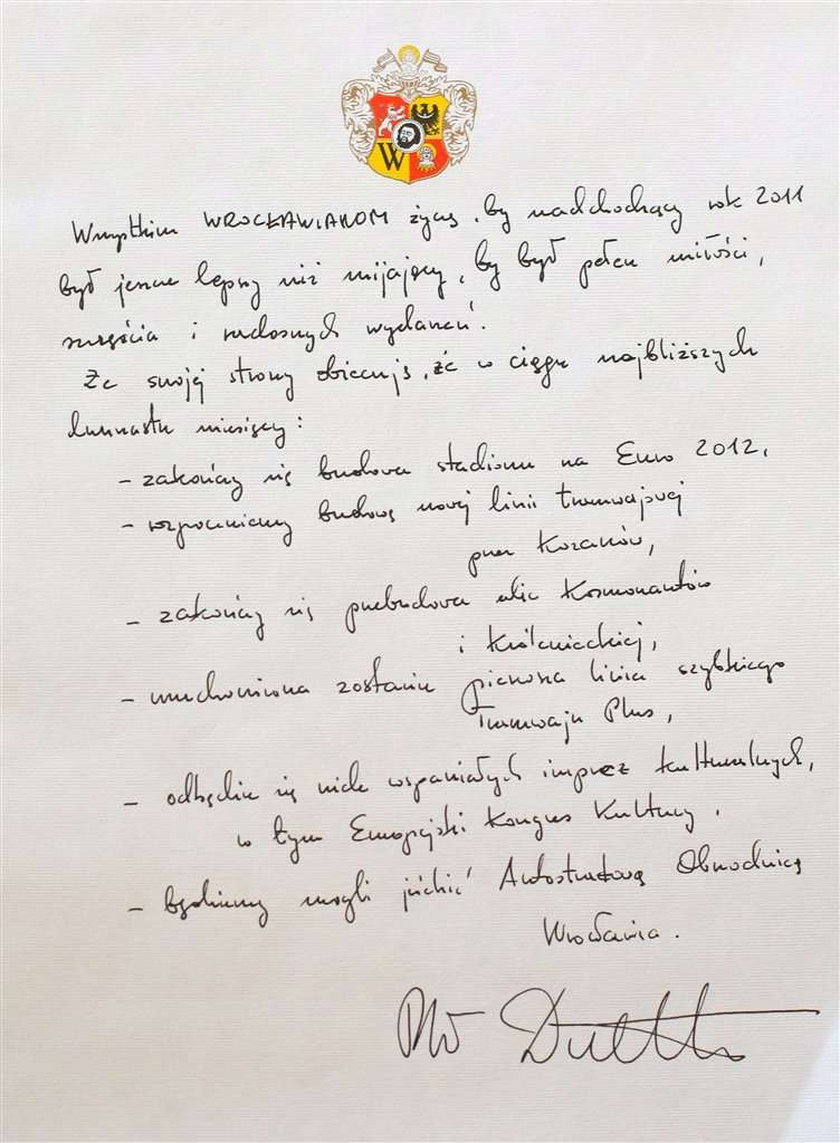 W
Wszystkim WROCŁAWIANOM życzę, by nadchodzący rok 2011
był jeszcze lepszy niż mijający, by był pełen miłości,
szczęścia i radosnych wydarzeń.
Ze swojej strony obiecuję, że w ciągu najbliższych
dwunastu miesięcy:
- zakończy się budowa stadionu na Euro 2012,
- rozpoczniemy budowę nowej linii tramwajowej
przez Kozanów,
- zakończy się przebudowa ulic Kosmonautów
i Królewieckiej,
- uruchomiona zostanie pierwsza linia szybkiego
Tramwaju Plus,
- odbędzie się wiele wspaniałych imprez kulturalnych,
w tym Europejski Kongres Kultury,
- będziemy mogli jeździć Autostradową Obwodnicą
Wrocławia.